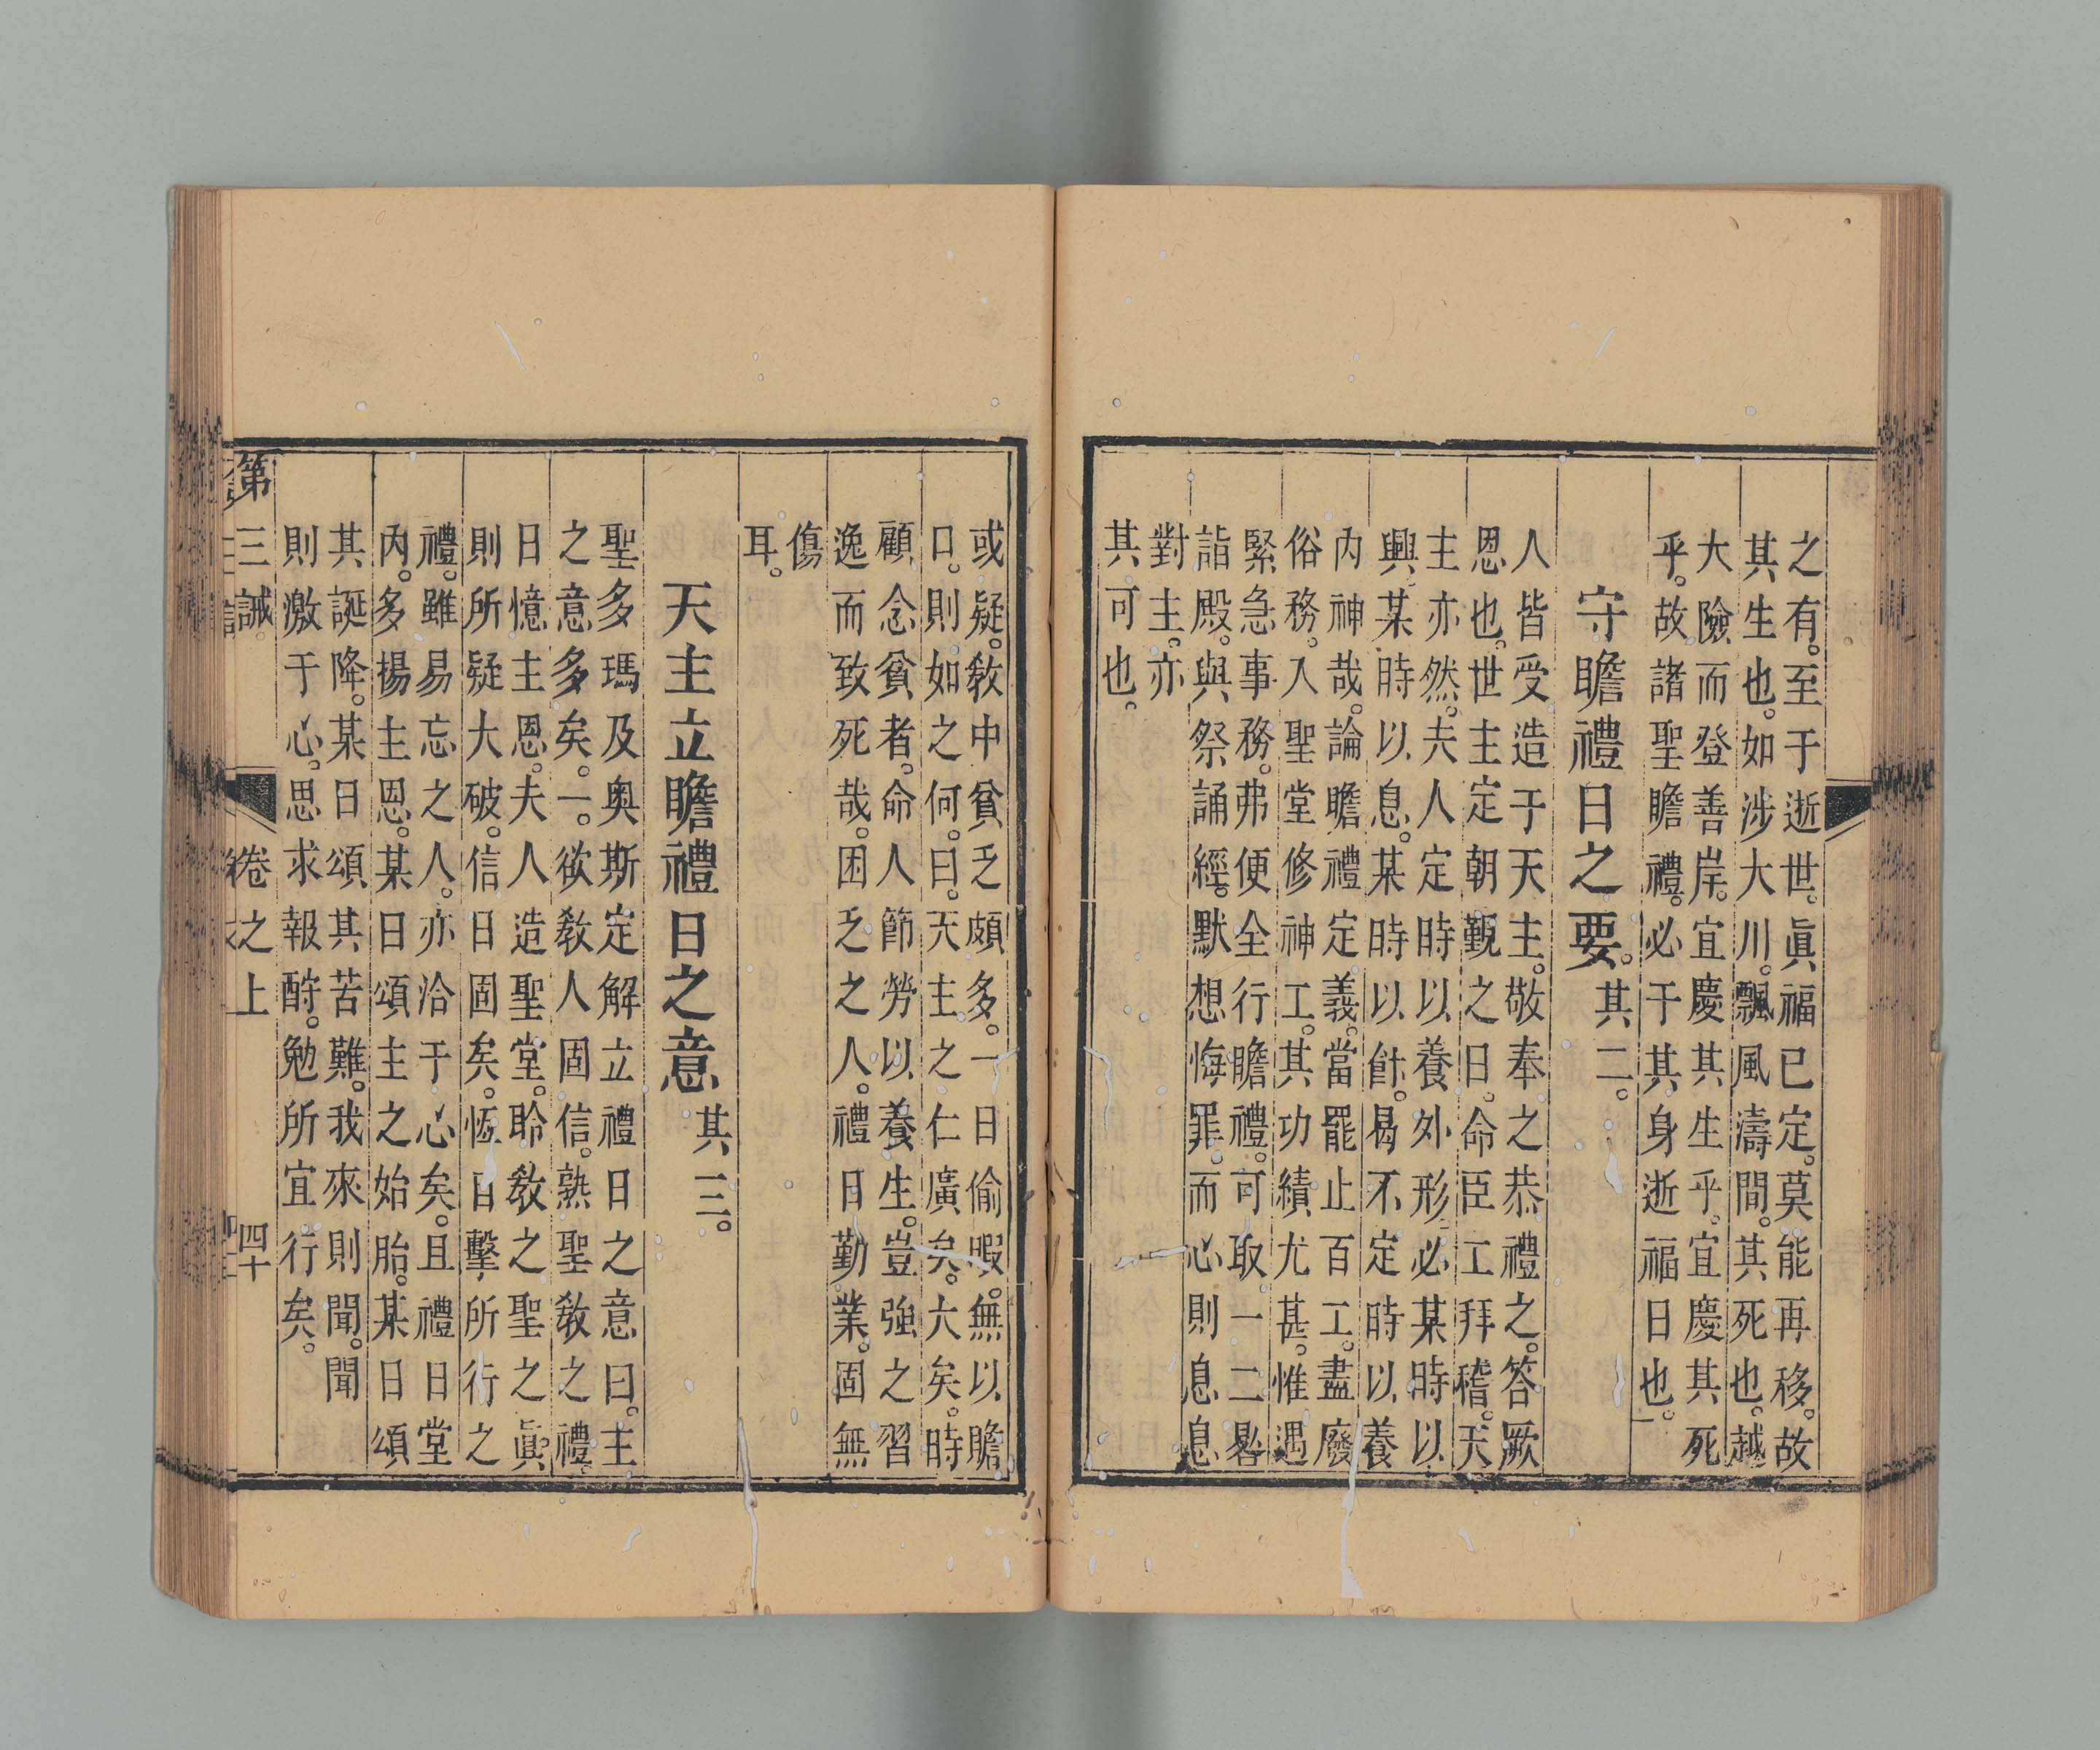 之有。至于逝世。眞福已定。莫能再移。故
其生也。如涉大川。飄風濤間。其死也。越
大險而登善岸。宜慶其生乎。宜慶其死
乎。故。諸聖瞻禮。必于其身逝福日也。
守瞻禮日之要。其二。
人皆受造于天主。敬奉之恭禮之。答厥
恩也。世主定朝覲之日。命臣工拜稽。天
主亦然。夫人定時以養外形。必某時以
興。某時以息。某時以食。曷不定時以養
內神哉。論瞻禮定義。當罷止百工。盡廢
俗務。入聖堂修神工。其功績尤甚。惟遇
緊急事務。弗便全行瞻禮。可取一二晷
詣殿。與祭誦經。默想悔罪。而心則息息
對主。亦
其可也。
或疑。敎中貧乏頗多。一日偷暇。無以贍
口。則如之何。曰。天主之仁廣矣。大矣。時
顧念貧者。命人節勞以養生。豈強之習
逸而致死哉。困乏之人。禮日勤業。固無
傷
耳。
天主立瞻禮日之意 其三。
聖多瑪及奧斯定解立禮日之意曰。主
之意多矣。一。欲敎人固信。熟聖敎之禮。
日憶主恩。夫人造聖堂。聆敎之聖之眞
則所疑大破。信日固矣。恆日擊所行之
禮。雖易忘之人。亦洽于心矣。且禮日堂
內。多揚主恩。某日頌主之始胎。某日頌
其誕降。某日頌其苦難。我來則聞。聞
則激于心。思求報酧。勉所宜行矣。
第三誡。 卷之上 四十